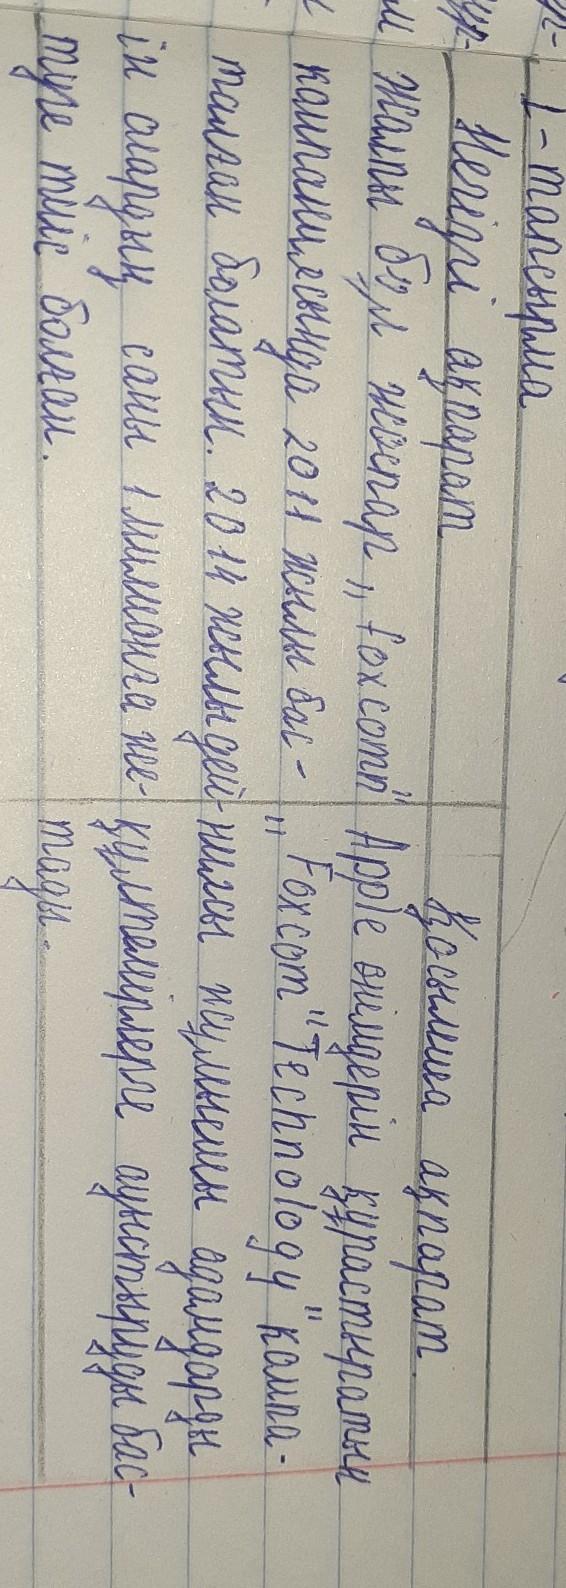 1-тапсырма
Негізгі ақпарат
Қосымша ақпарат
Жалпы бұл жоспар „Foxconn"
компаниясында 2011 жылы бас-
талған болатын. 2014 жылы дей-
ін олардың саны 1 миллионга же-
туге тиіс болған.
Apple өнімдерін құрастыратын
„Foxcom" "Technology" компа-
ниясы жұмысшы адамдарды
құлтемірлерге ауыстыруды бас-
тады.